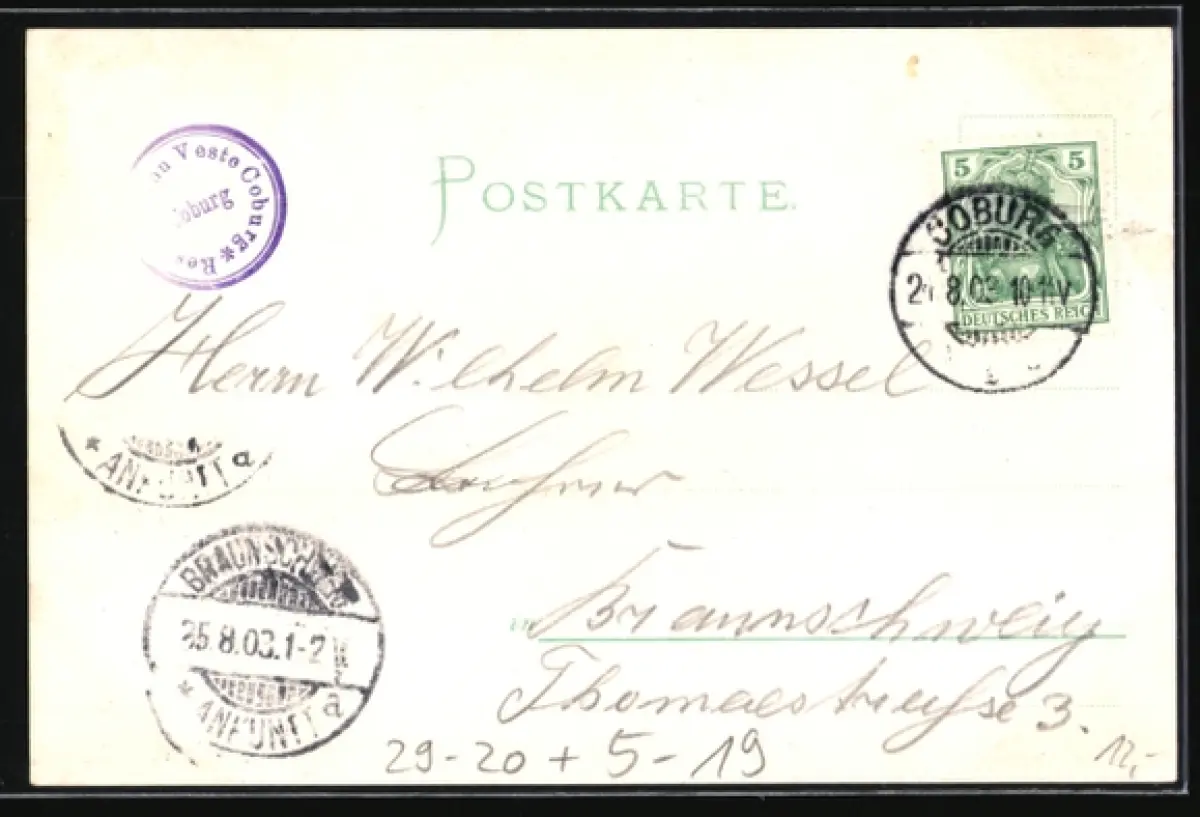 Veste Coburg * Res
oburg
POSTKARTE.
5 5
DEUTSCHES REICH
COBURG
8.03 10-11V
Herrn Wilhelm Wessel
* ANKUNFT a
in Braunschweig
Thomaestraße 3.
BRAUNSCHWEIG
25.8.03.1-2
* ANKUNFT a
29-20 + 5-19
12,-